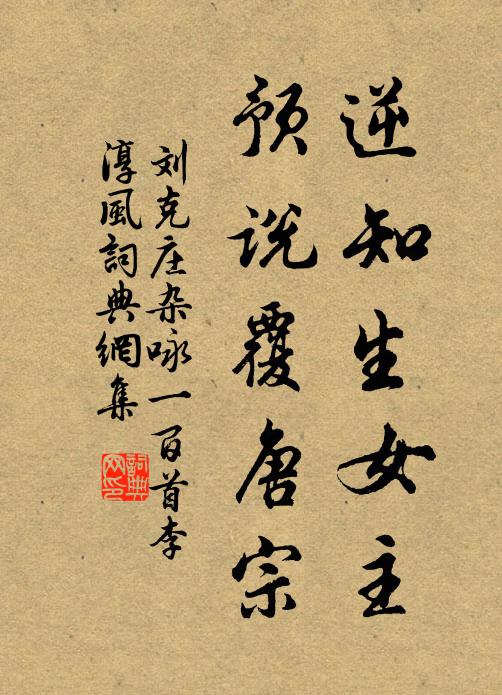 逆知生女主
预说覆唐宗
刘克庄杂咏一百首李
淳風詞典網集
詞典
网印